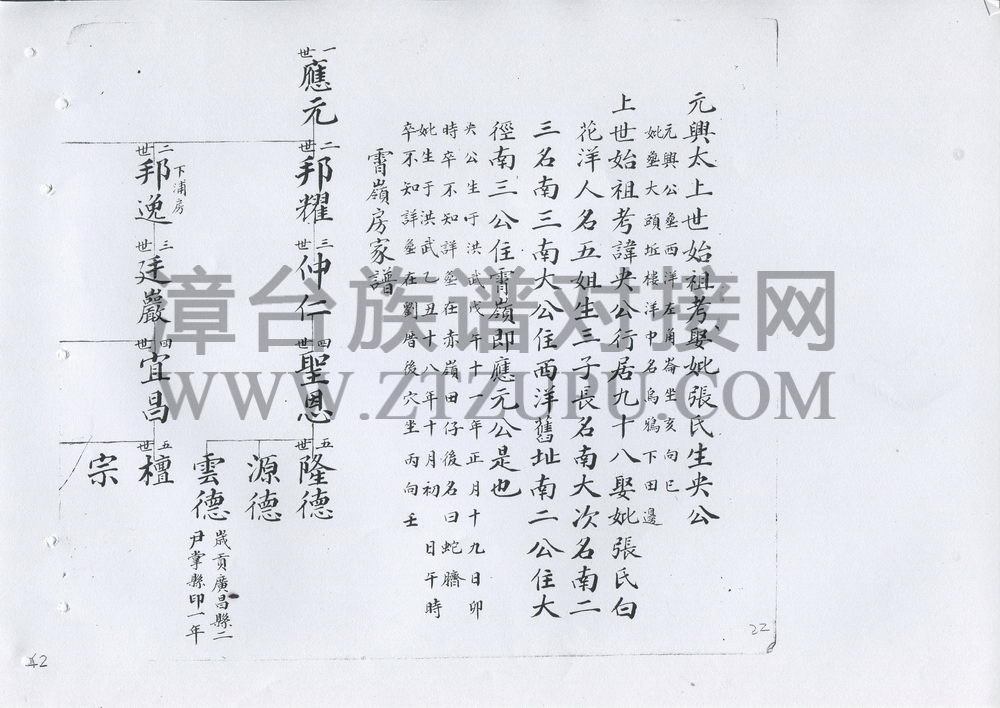 元興太上世始祖考娶妣張氏生央公
元興公塟西洋左角崙坐亥向巳
妣塟大頭坵樓洋中名烏鴉下田邊
上世始祖考諱央公行居九十八娶妣張氏白
花洋人名五姐生三子長名南大次名南二
三名南三南大公住西洋舊址南二公住大
徑南三公住霄嶺即應元公是也
央公生于洪武戊午十一年正月十九日卯
時卒不知詳塟在赤嶺田仔後名曰蛇臍
妣生于洪武乙丑十八年十月初 日午時
卒不知詳塟在劉厝後穴坐丙向壬
霄嶺房家譜
一世
應元
二世
邦耀
三世
仲仁
四世
聖恩
五世
隆德
源德
雲德
歲貢廣昌縣二
尹掌縣印一年
下浦房
二世
邦逸
三世
廷巖
四世
宜昌
五世
檀
宗
漳台族谱对接网
WWW.ZTZUPU.COM
22
42